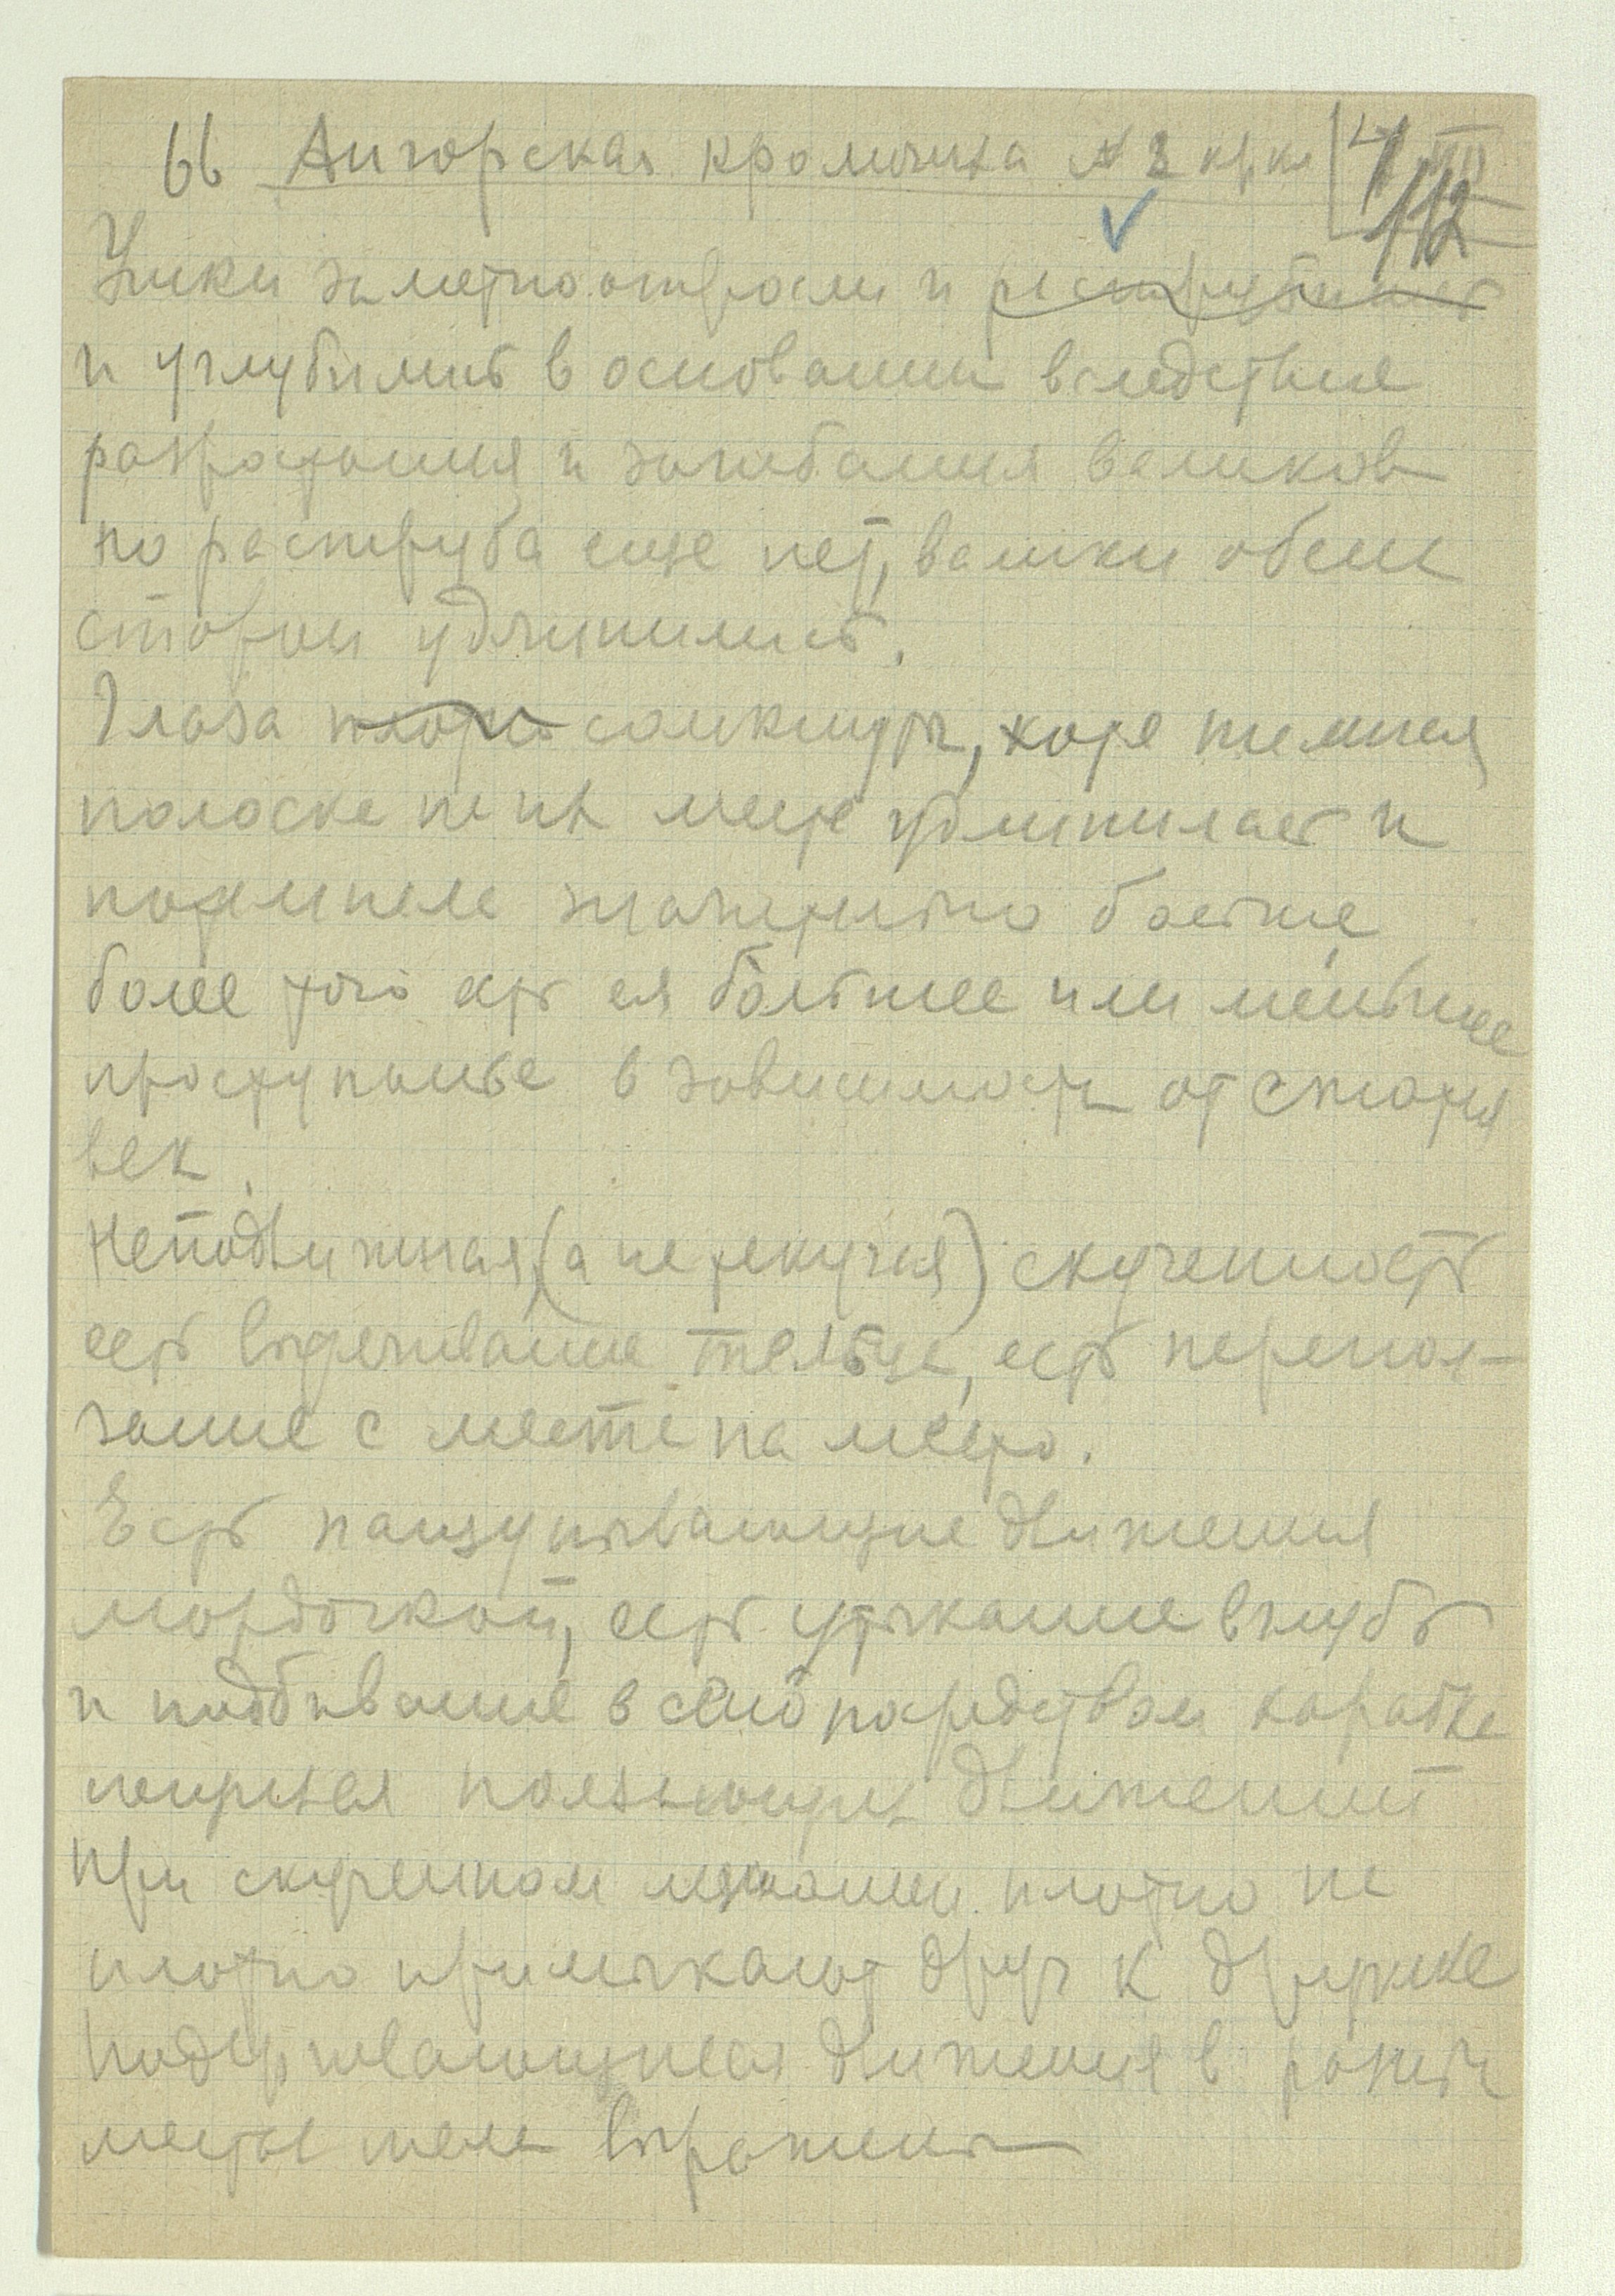 66 Ангорская крольчиха № 2 4/III
112
Ушки заметно отросли и раструбились
и углубились в основании вследствие
разрастания и загибания валиков
но раструба еще нет, валики обеих
сторон удлинились.
Глаза сомкнуты, хотя темная
полоска на их месте удлинилась и
потемнела значительно больше
более того есть ея большее или меньшее
проступанье в зависимости от сжатия
век.
Неподвижная, (а не текучая) скученность
есть выдергивание тельца, есть переполз-
зание с места на место.
Есть нащупывающие движения
мордочкой, есть утыкание вглубь
и подбивание в сено посредством коротке
ползающих движений
При скученном лежании плотно не
плотно примыкают друг к дружке
Подергивающиеся движения в разных
местах тела выражены